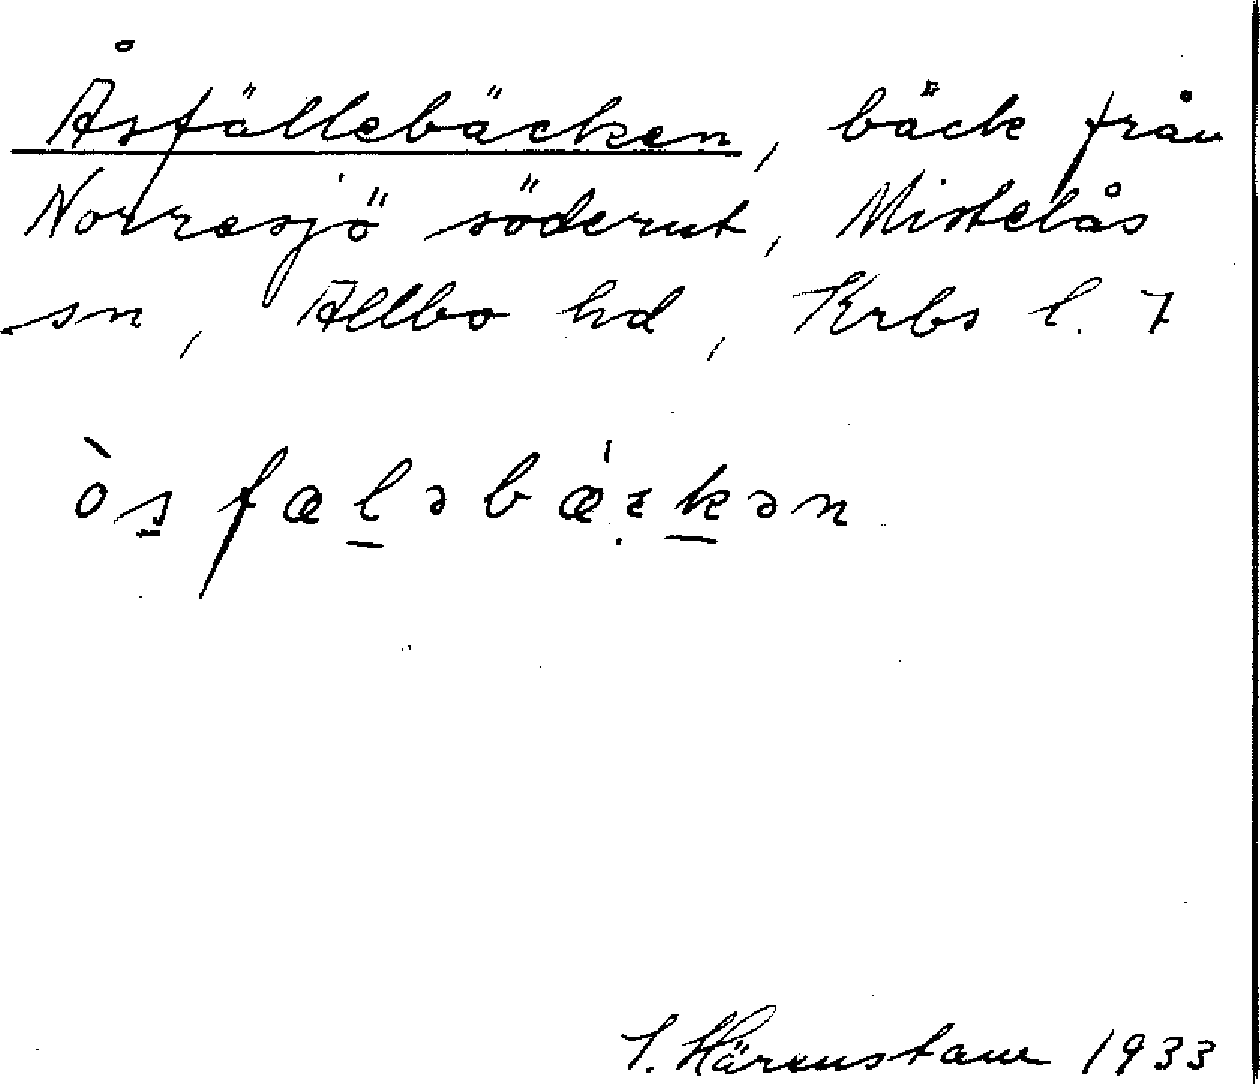 Åsfällebäcken, bäck från
Norresjö söderut, Mistelås
sn, Allbo hd, Krbs l. 7
Härenstam 1933